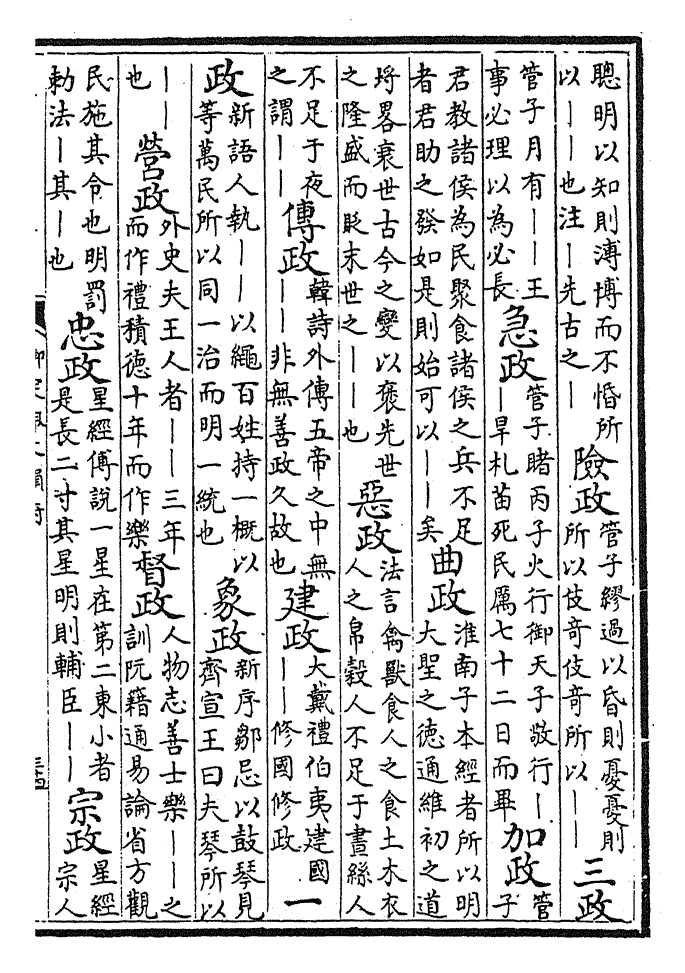 聰明以知則溥博而不惛所
以——也注—先古之—
險政
管子繆過以昏則憂憂則
所以伎奇伎奇所以——
三政
管子月有——王
事必理以為必長
急政
管子睹丙子火行御天子敬行—
—旱札苗死民厲七十二日而畢
加政
管
子
君教諸侯為民聚食諸侯之兵不足
者君助之發如是則始可以——矣
曲政
淮南子本經者所以明
大聖之德通維初之道
埒畧衰世古今之變以褒先世
之隆盛而貶末世之——也
惡政
法言禽獸食人之食土木衣
人之帛穀人不足于晝絲人
不足于夜
之謂——
傳政
韓詩外傳五帝之中無
——非無善政久故也
建政
大戴禮伯夷建國
——修國修政
一
政
新語人執——以繩百姓持一概以
等萬民所以同一治而明一統也
象政
新序鄒忌以鼓琴見
齊宣王曰夫琴所以
——
也
營政
外史夫王人者——三年
而作禮積德十年而作樂
督政
人物志善士樂——之
訓阮籍通易論省方觀
民施其令也明罰
勅法—其—也
忠政
星經傅說一星在第二東小者
是長二寸其星明則輔臣——
宗政
星經
宗人